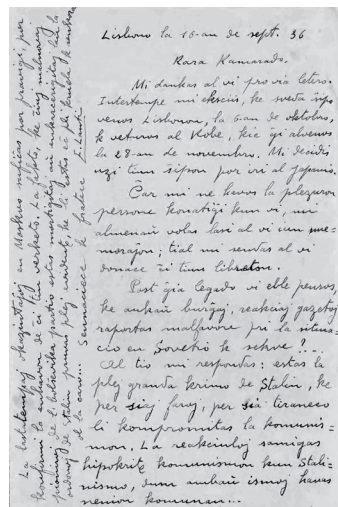 Lisbono la 18-an de sept. 36
Kara Kamarado.
Mi dankas al vi pro via letero.
Intertempe mi eksciis, ke sveda ŝipo
venos Lisbonon, la 6-an de oktobro,
k veturos al Kobe, kie ĝi alvenos
la 28-an de novembro. Mi decidis
uzi tiun ŝipon por iri al Japanio.
Ĉar mi ne havos la plezuron
persone konatiĝi kun vi, mi
almenaŭ volas lasi al vi ian me-
morajon; tial mi sendas al vi
donace ĉi tiun libreton.
Post ĝia legado vi eble pensos,
ke ankaŭ burĝaj, reakciaj gazetoj
raportas malfavore pri la situa-
cio en Sovetio k sekve?...
Al tio mi respondas: estas la
plej granda krimo de Stalin, ke
per siaj faroj, per sia tiraneco
li kompromitas la komunis-
mon. La reakciuloj samigas
hipokrite komunismon kun Stali-
nismo, dum ambaŭ ismoj havas
nenion komunan...
La okazintaĵoj en Moskvo sufiĉas por pravigi, por
konfirmi la enhavon de ĉi tiu verketo. La fakto, ke
pioniroj de l' bolŝevika partio estas mortigitaj laŭ la
ordono de Stalin pruvas plej evidente, ke la
Sennaciece k frate E. Lanti